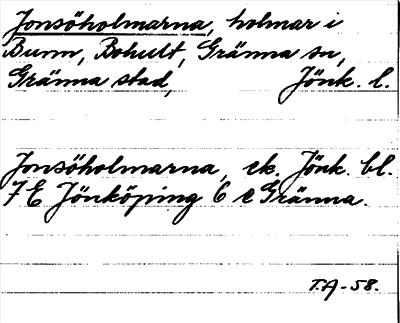 Jonsöholmarna, holmar i
Bunn, Bohult, Gränna sn,
Gränna stad, Jönk. l.
Jonsöholmarna, ek. Jönk. bl.
7E Jönköping 6 e Gränna.
T.A-58.